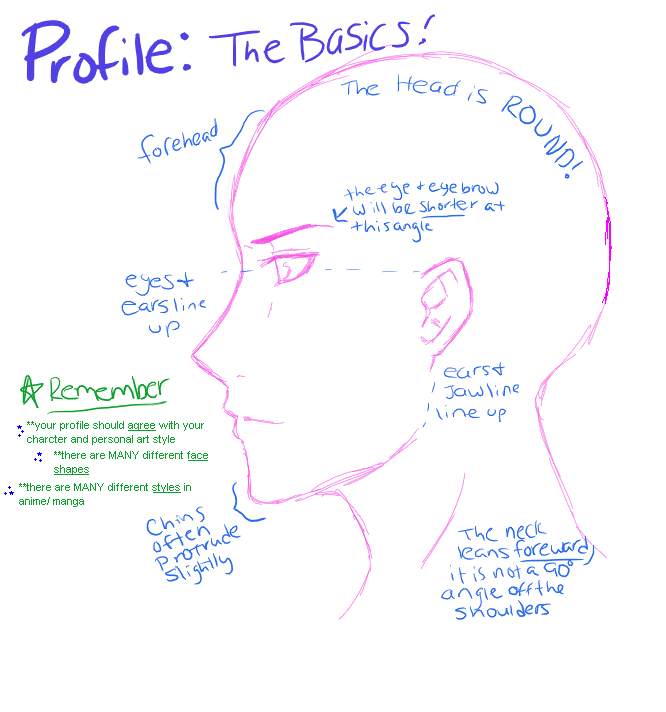 Profile: The Basics!
The Head is ROUND!
forehead
the eye + eyebrow
will be shorter at
this angle
eyes +
ears line
up
ears +
Jawline
line up
Remember
**your profile should agree with your
charcter and personal art style
**there are MANY different face
shapes
**there are MANY different styles in
anime/ manga
Chins
often
Protrude
slightly
The neck
leans foreward,
it is not a 90°
angle off the
shoulders